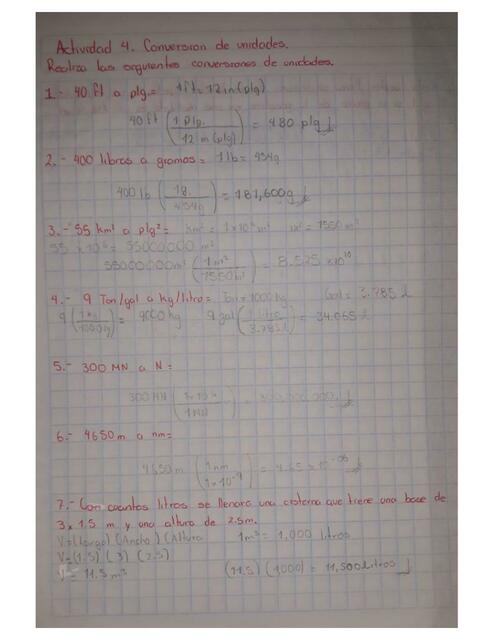 Actividad 4. Conversion de unidades.
Realiza las siguientes conversiones de unidades.
1.- 40 ft a plg.= 1ft = 12 in (plg)
40 ft (1 plg. / 12 in (plg)) = 480 plg
2.- 400 libras a gramos = 1 lb = 454g
400 lb (1g. / 454g) = 181,600g
3.- 55 km² a plg² = km² = 1x10⁶ m² m² = 1550 in²
55 x 10⁶ = 55000000 m²
55000000m² (1 m² / 1550 in²) = 8.525 x10¹⁰
4.- 9 Ton/gal a kg/litro = Ton = 1000 kg Gal = 3.785 l
9 (1 kg / 1000 kg) = 9000 kg 9 gal (1 litro / 3.785 l) = 34.065 l
5.- 300 MN a N =
300 MN (1x10⁶ / 1 MN) = 300,000,000
6.- 4650 m a nm=
4650 m (1 nm / 1x10⁻⁹) = 4.65 x 10⁻⁰⁶
7.- Con cuantos litros se llenara una cisterna que tiene una base de
3 x 1.5 m y una altura de 2.5m.
V = (Largo) (Ancho) (Altura 1m³ = 1,000 litros
V = (1.5) (3) (2.5)
V = 11.5 m³ (11.5) (1000) = 11,500 Litros